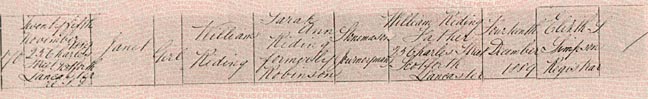 170
Twenty fifth
November
1889
23 Charles
Street Scotforth
Lancaster
Janet
Girl
William
Riding
Sarah
Ann
Riding
formerly
Robinson
Stonemason
Journeyman
William Riding
Father
23 Charles Street
Scotforth
Lancaster
Fourteenth
December
1889
Simpson
Registrar